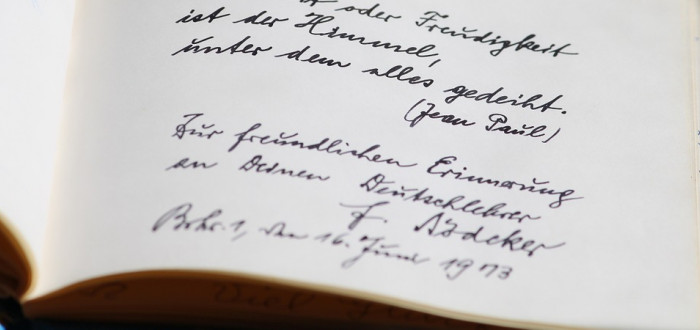 oder Freudigkeit
ist der Himmel,
unter dem alles gedeiht.
(Jean Paul)
Zur freundlichen Erinnerung
an Deinen Deutschlehrer
F.
den 16. Juni 1973